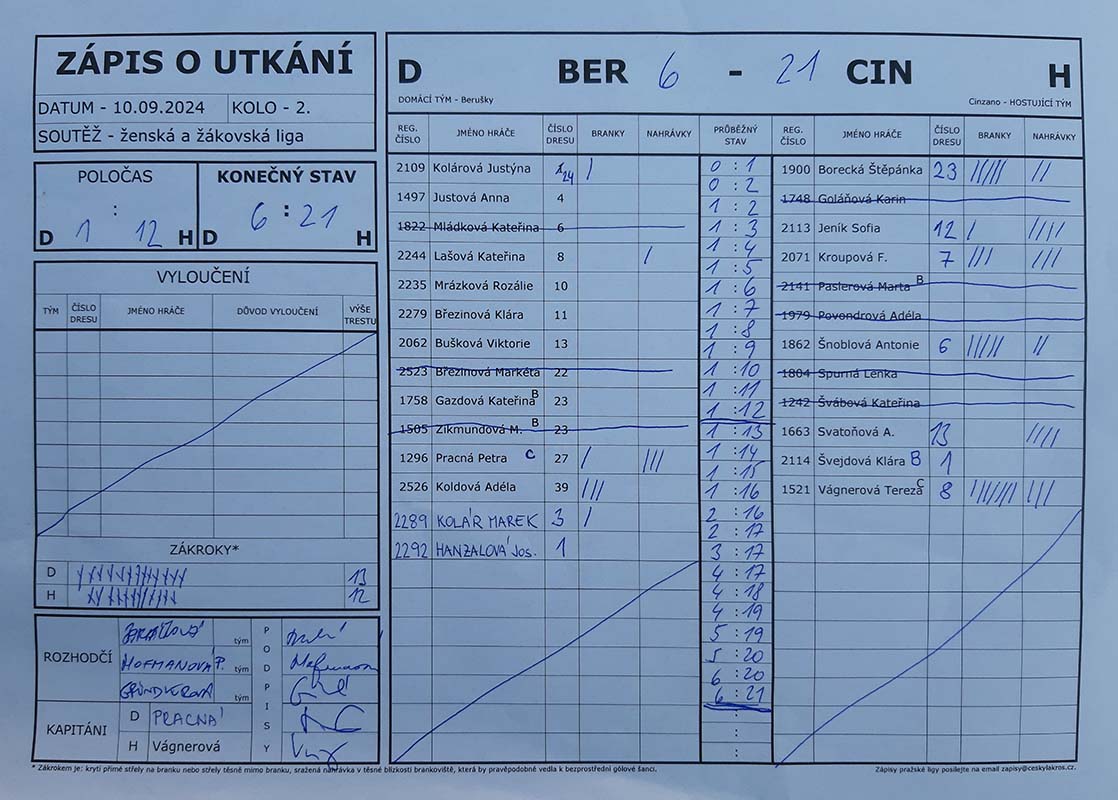 ZÁPIS O UTKÁNÍ
DATUM - 10.09.2024 KOLO - 2.
SOUTĚŽ - ženská a žákovská liga
POLOČAS
D 1 : 12 H
KONEČNÝ STAV
D 6 : 21 H
VYLOUČENÍ
TÝM ČÍSLO DRESU JMÉNO HRÁČE DŮVOD VYLOUČENÍ VÝŠE TRESTU
ZÁKROKY*
D 13
H 12
ROZHODČÍ
tým
HOFMANOVÁ P. tým
GRÜNDLEROVÁ tým
PODPISY
KAPITÁNI
D PRACNÁ
H Vágnerová
D BER 6 - 21 CIN H
DOMÁCÍ TÝM - Berušky Cinzano - HOSTUJÍCÍ TÝM
REG. ČÍSLO JMÉNO HRÁČE ČÍSLO DRESU BRANKY NAHRÁVKY
2109 Kolárová Justýna 24 /
1497 Justová Anna 4
1822 Mládková Kateřina 6
2244 Lašová Kateřina 8 /
2235 Mrázková Rozálie 10
2279 Březinová Klára 11
2062 Bušková Viktorie 13
2523 Březinová Markéta 22
1758 Gazdová Kateřina B 23
1505 Zikmundová M. B 23
1296 Pracná Petra C 27 / ///
2526 Koldová Adéla 39 ///
2289 KOLÁŘ MAREK 3 /
2292 HANZALOVÁ JOS. 1
PRŮBĚŽNÝ STAV
0 : 1
0 : 2
1 : 2
1 : 3
1 : 4
1 : 5
1 : 6
1 : 7
1 : 8
1 : 9
1 : 10
1 : 11
1 : 12
1 : 13
1 : 14
1 : 15
1 : 16
2 : 16
2 : 17
3 : 17
4 : 17
4 : 18
4 : 19
5 : 19
5 : 20
6 : 20
6 : 21
:
:
:
REG. ČÍSLO JMÉNO HRÁČE ČÍSLO DRESU BRANKY NAHRÁVKY
1900 Borecká Štěpánka 23 ///// //
1748 Goláňová Karin
2113 Jeník Sofia 12 / ////
2071 Kroupová F. 7 /// ///
2141 Paslerová Marta B
1979 Povondrová Adéla
1862 Šnoblová Antonie 6 ///// //
1804 Spurná Lenka
1242 Švábová Kateřina
1663 Svatoňová A. 13 ////
2114 Švejdová Klára B 1
1521 Vágnerová Tereza C 8 /////// ///
* Zákrokem je: krytí přímé střely na branku nebo střely těsně mimo branku, sražená nahrávka v těsné blízkosti brankoviště, která by pravěpodobně vedla k bezprostřední gólové šanci.
Zápisy pražské ligy posílejte na email zapisy@ceskylakros.cz.